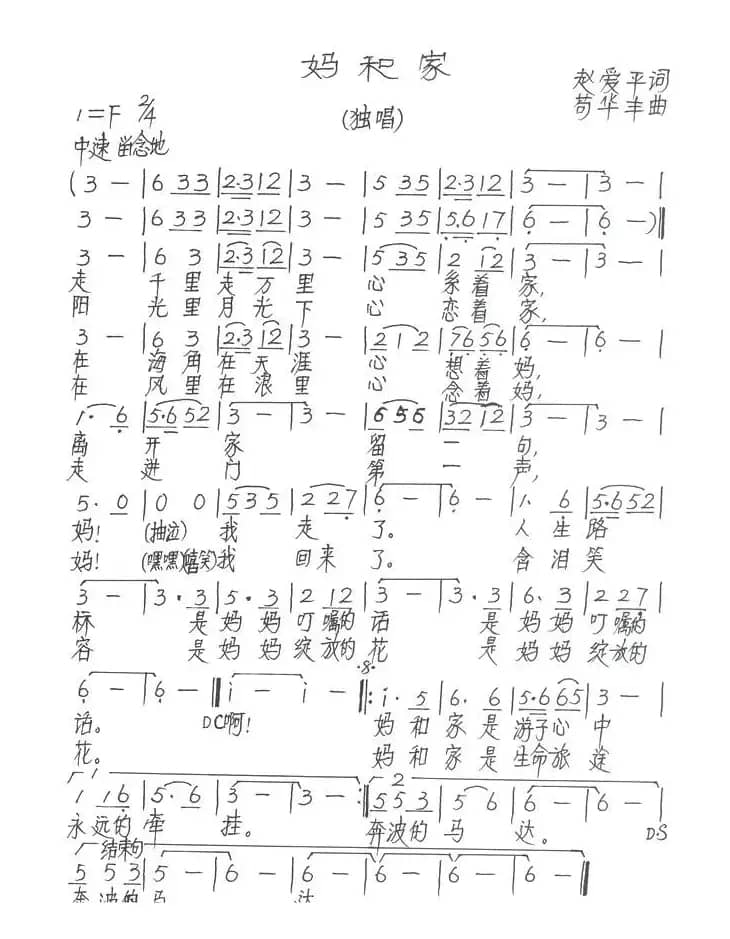 妈和家
赵爱平词
苟华丰曲
1=F 2/4
(独唱)
中速 留念地
(3 — | 6 33 | 2·312 | 3 — | 5 35 | 2·312 | 3 — | 3 — |
3 — | 6 33 | 2·312 | 3 — | 5 35 | 5·617 | 6 — | 6 —)‖
3 — | 6 3 | 2·312 | 3 — | 535 | 2 12 | 3 — | 3 — |
走 千里走万里 心 系着家,
阳 光里月光下 心 恋着家,
3 — | 6 3 | 2·312 | 3 — | 212 | 7656 | 6 — | 6 — |
在 海角在天涯 心 想着妈,
在 风里在浪里 心 念着妈,
1·6 | 5·652 | 3 — | 3 — | 656 | 3212 | 3 — | 3 — |
离开家 留一句,
走进门 第一声,
5·0 | 0 0 | 535 | 2 27 | 6 — | 6 — | 1·6 | 5·652 |
妈! (抽泣) 我走了。 人生路
妈! (嘿嘿)(嘻笑)我回来了。 含泪笑
3 — | 3·3 | 5·3 | 2 12 | 3 — | 3·3 | 6·3 | 2 27 |
标 是妈妈叮嘱的话 是妈妈叮嘱的
容 是妈妈绽放的花 是妈妈绽放的
6 — | 6 — ‖ i — | i — ‖: i·5 | 6·6 | 5·665 | 3 — |
话。 DC啊! 妈和家是游子心中
花。 妈和家是生命旅途
1
2
1 16 | 5·6 | 3 — | 3 — :‖ 553 | 56 | 6 — | 6 — |
永远的牵挂。 奔波的马达。 DS
结束句
5 53 | 5 — | 6 — | 6 — | 6 — | 6 — | 6 — ‖
奔波的马 达